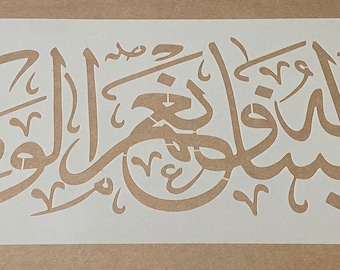 سبنا لله ونعم الو